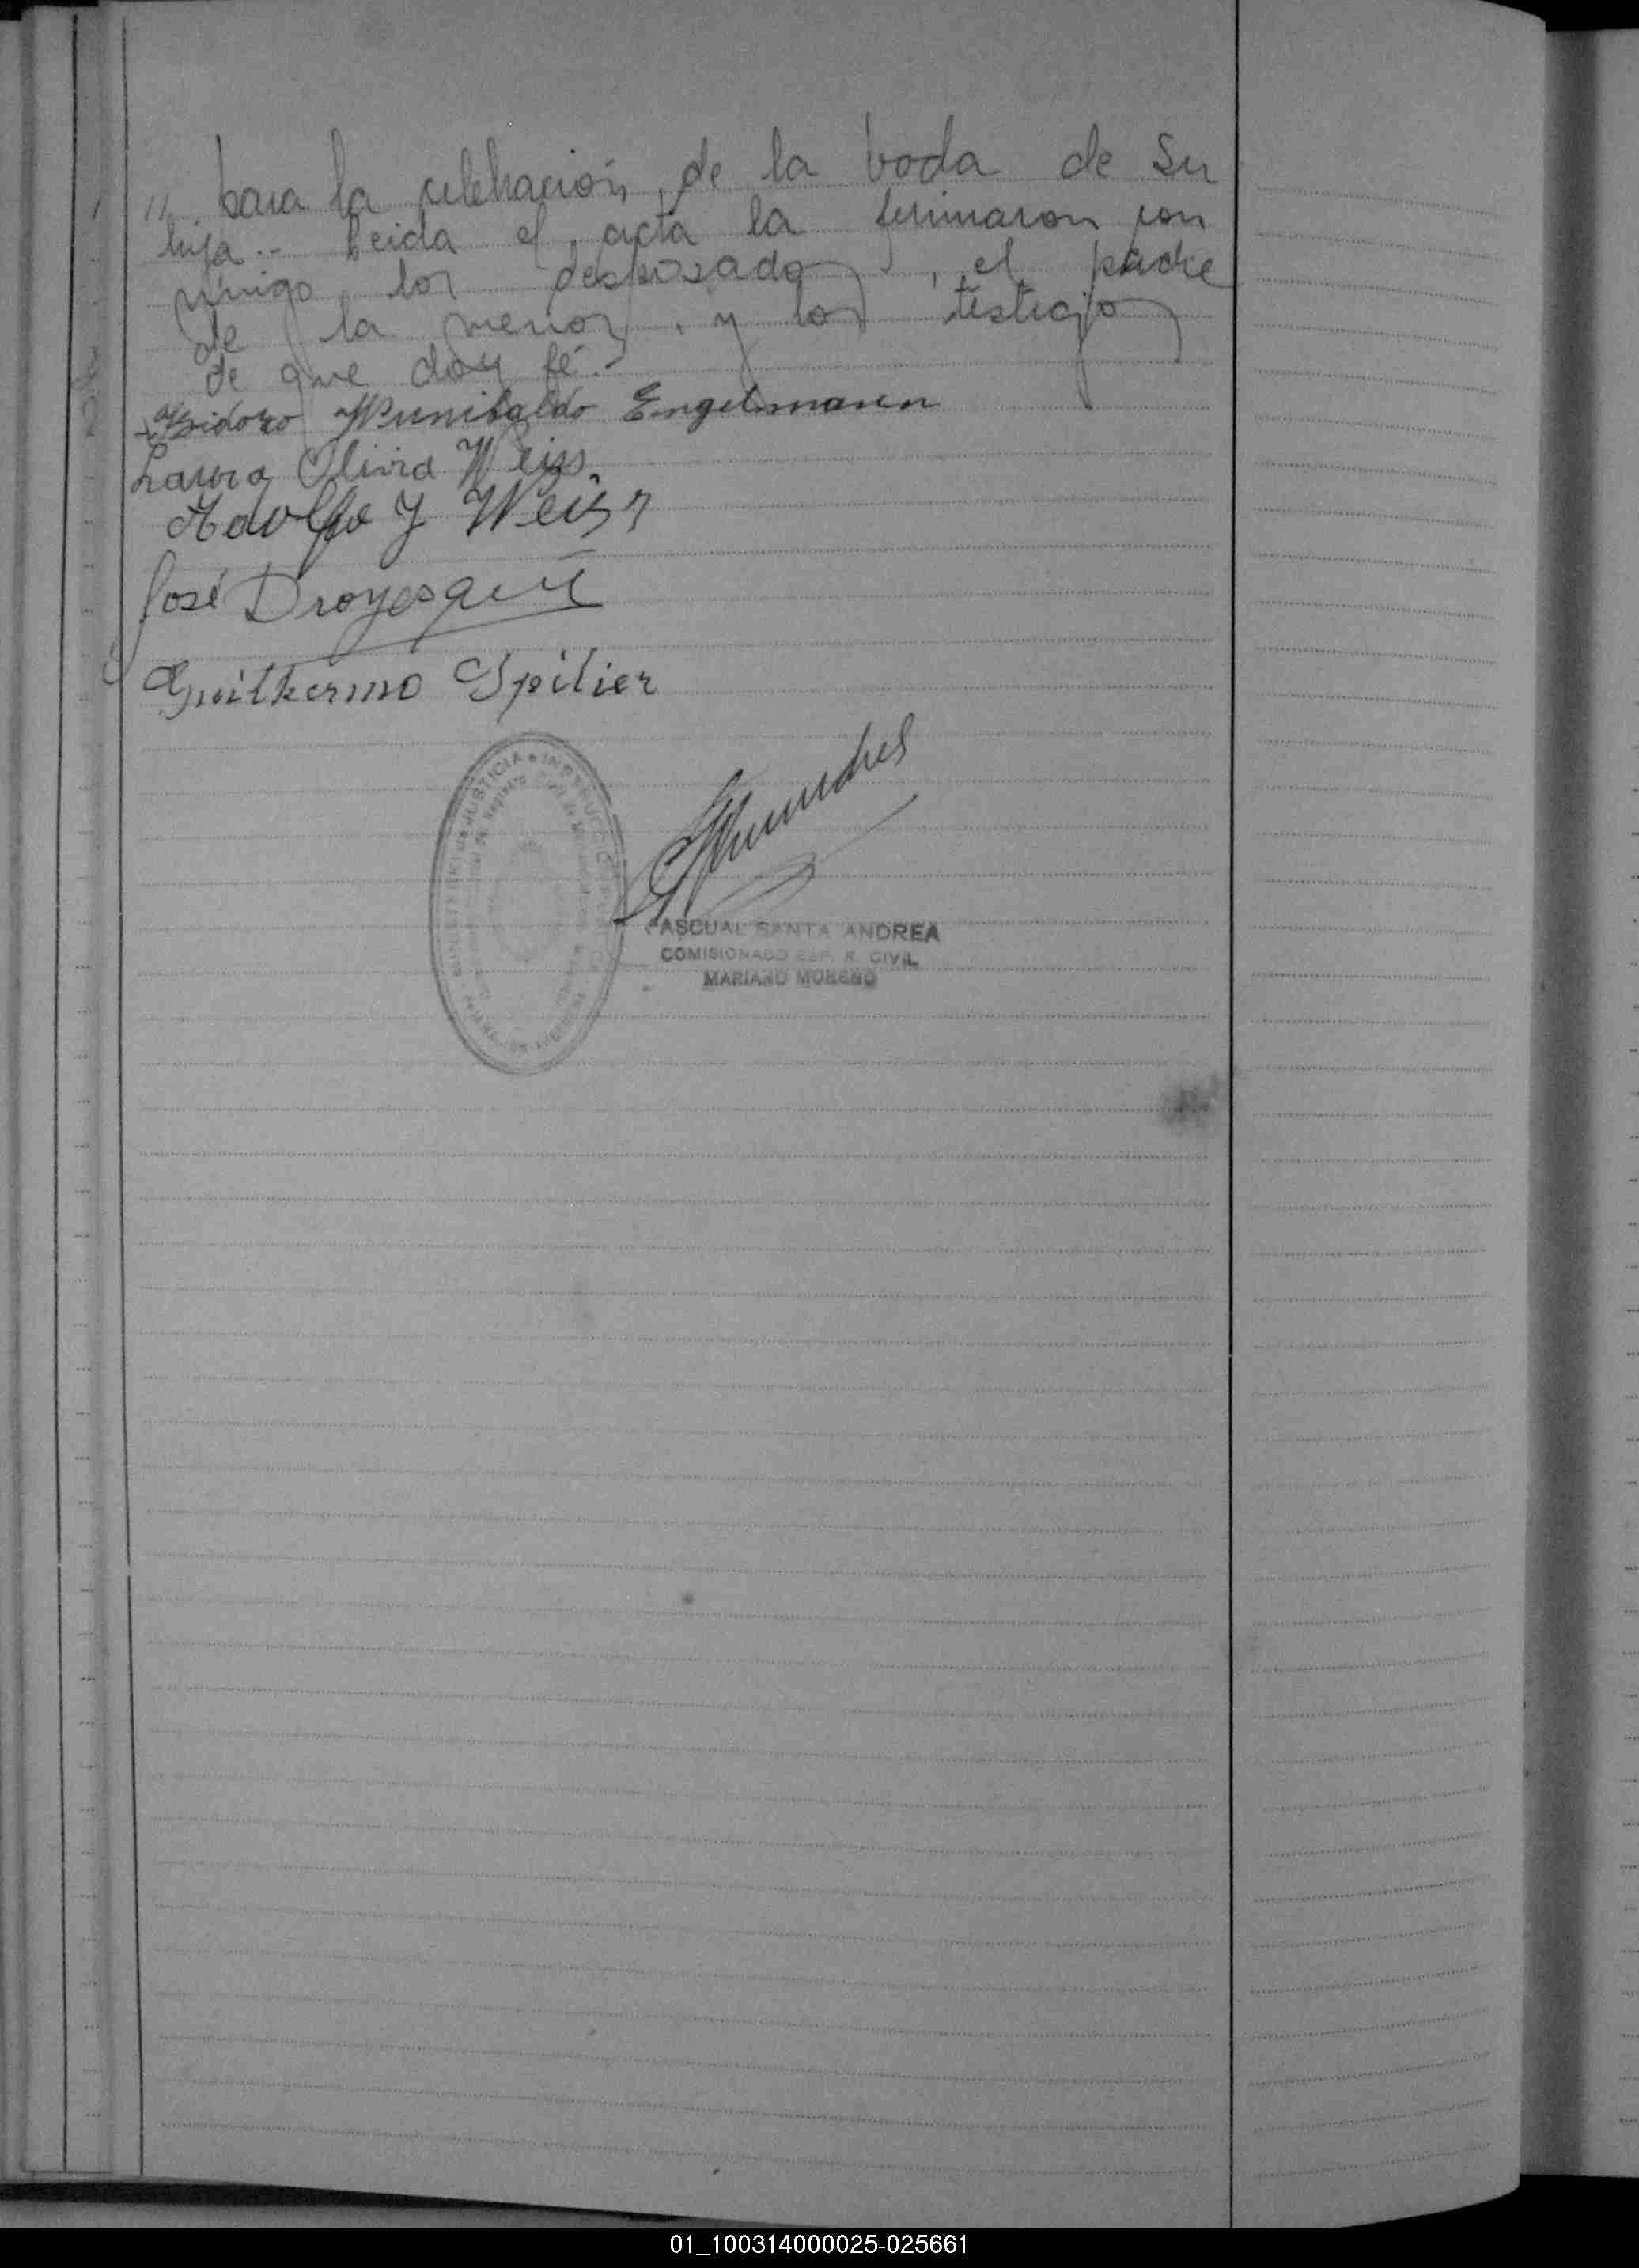 // para la celebración, de la boda de su
hija.- Leida el acta la firmaron con
migo los desposados, el padre
de la menor, y los testigos
de que doy fé.-
Isidoro Wunibaldo Engelmann
Laura Olivia Weiss
Adolfo J Weiss
José Droyesqui
Guilhermo Spilier
MINISTERIO DE JUSTICIA • INSTRUCCIÓN
PASCUAL SANTA ANDREA
COMISIONADO ESP. R. CIVIL
MARIANO MORENO
01_100314000025-025661